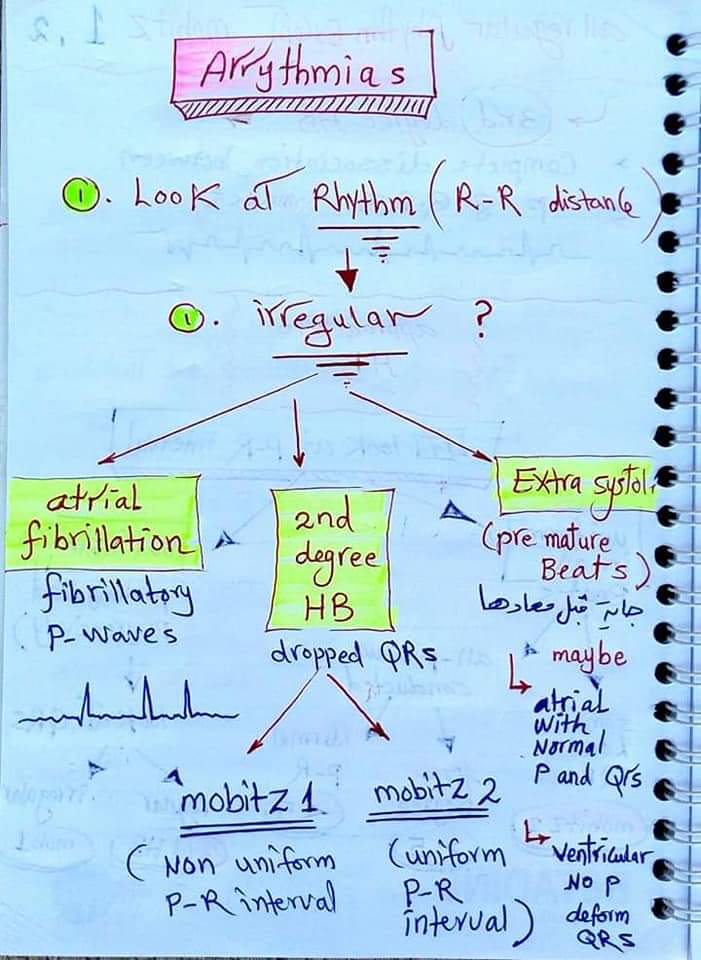 Arrythmias
①. Look at Rhythm (R-R distance)
①. irregular ?
atrial
fibrillation
fibrillatory
P-waves
2nd
degree
HB
dropped QRs
mobitz 1
(Non uniform
P-R interval
mobitz 2
(uniform
P-R
interval)
Extra systol
(pre mature
Beats)
جاية قبل معادها
maybe
atrial
with
Normal
P and Qrs
Ventricular
No P
deform
QRS